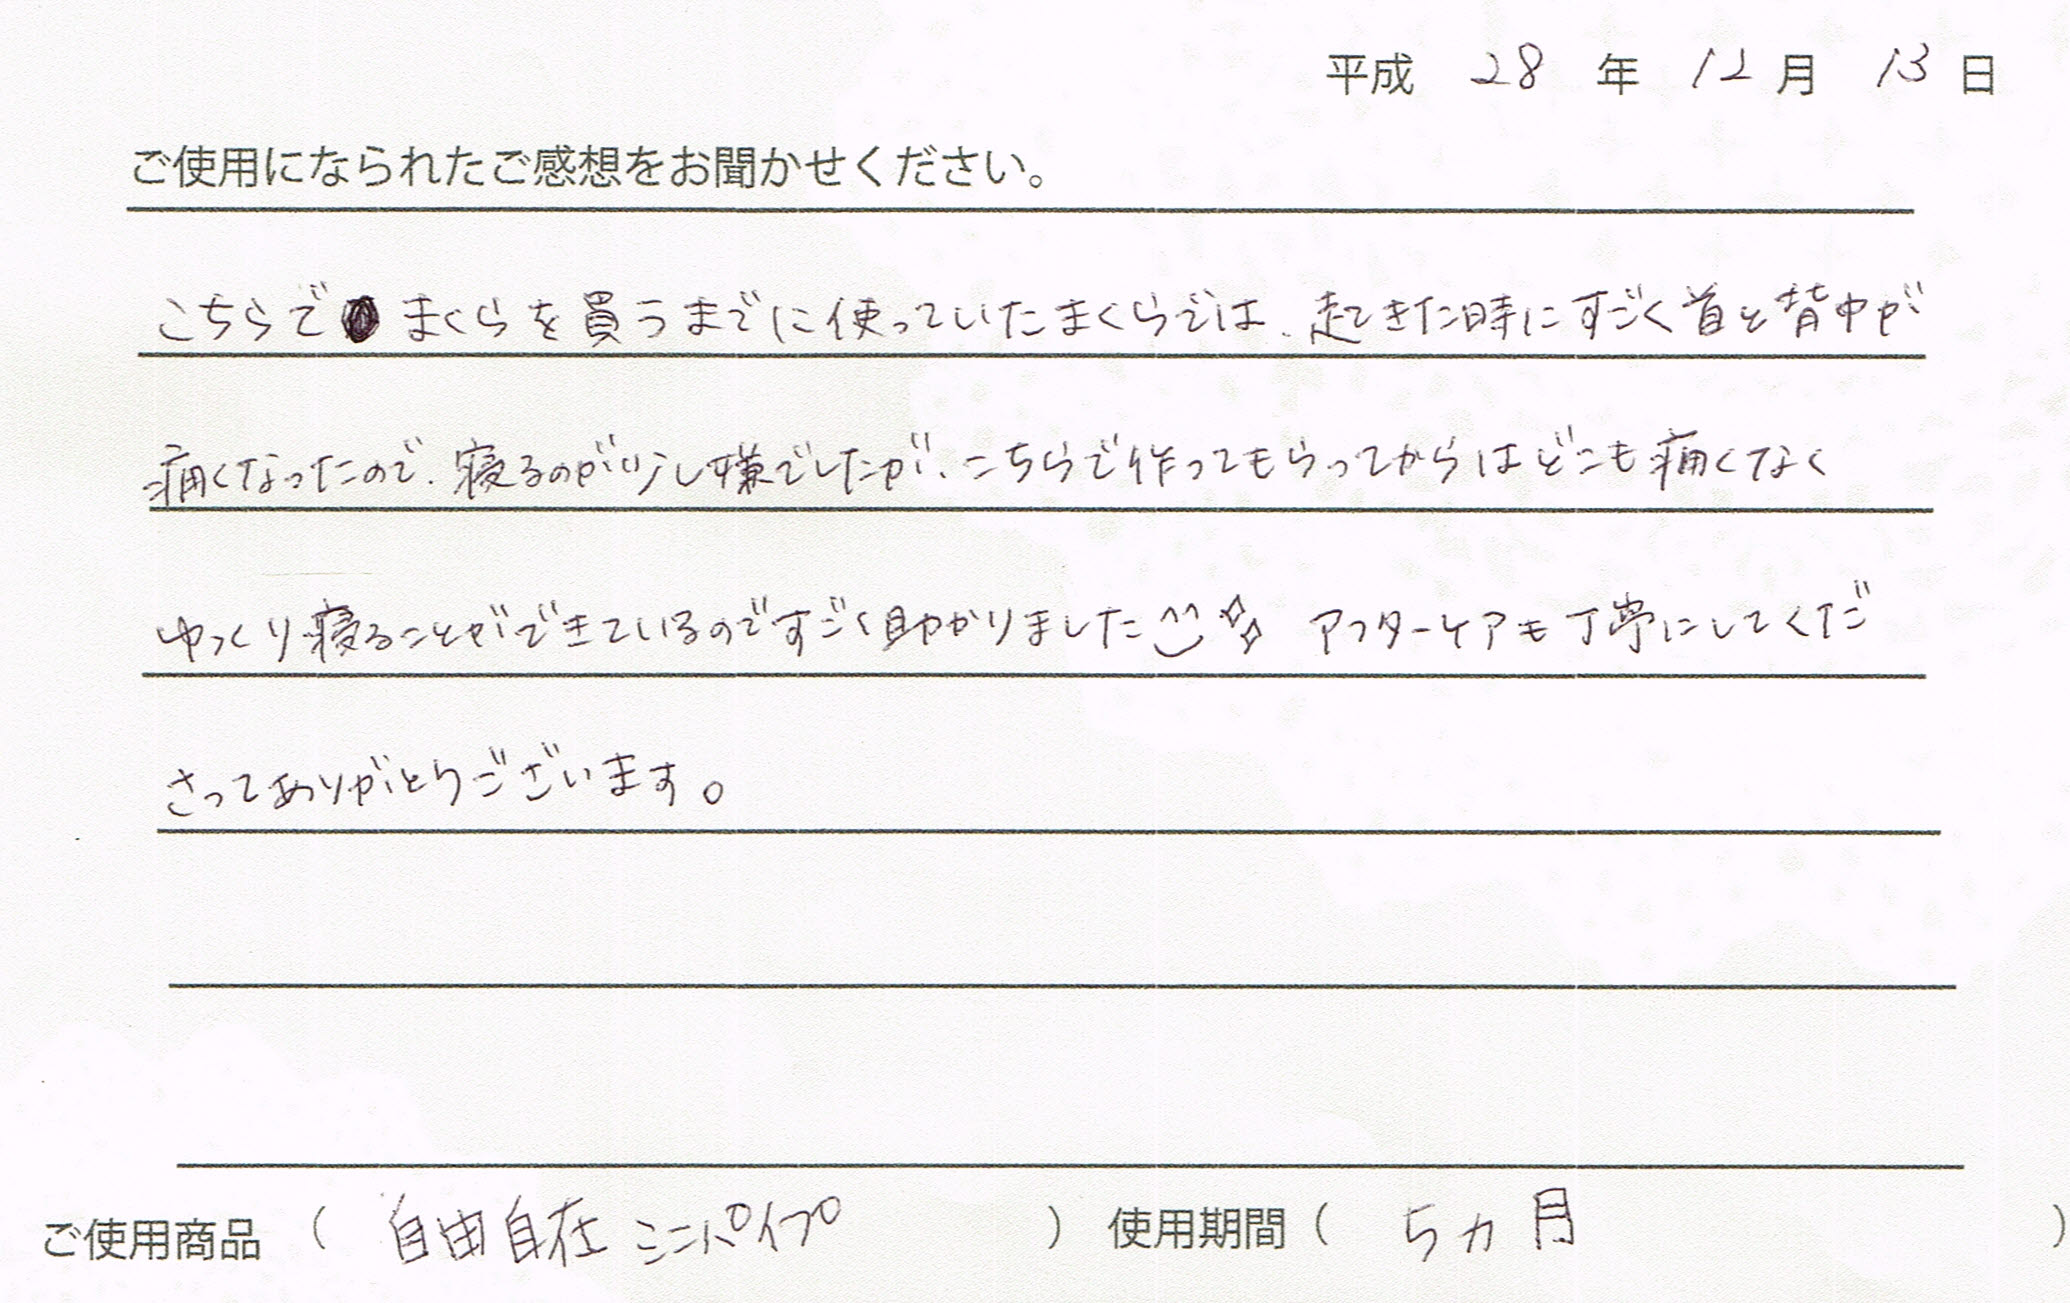 平成 28 年 12 月 13 日
ご使用になられたご感想をお聞かせください。
こちらで まくらを買うまでに使っていたまくらでは、起きた時にすごく首と背中が
痛くなったので、寝るのが少し嫌でしたが、こちらで作ってもらってからはどこも痛くなく
ゆっくり寝ることができているのですごく助かりました アフターケアも丁寧にしてくだ
さってありがとうございます。
ご使用商品 ( 自由自在 ミニパイプ ) 使用期間 ( 5ヵ月 )